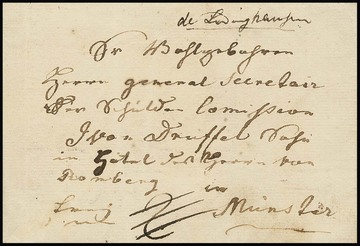 de Lüdinghausen
Sr Wohlgebohren
Herrn general Secretair
der Schulden Comission
J von Druffel
in Hotel des Herrn von
Romberg in
Münster